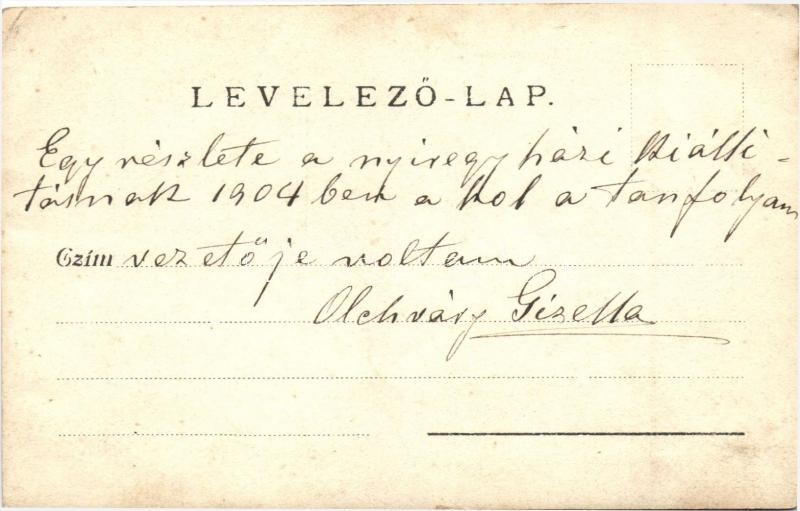 LEVELEZŐ-LAP.
Egy részlete a nyiregyházi kiálli-
tásnak 1904 ben a hol a tanfolyam
Czím vezetője voltam
Olchváry Gizella